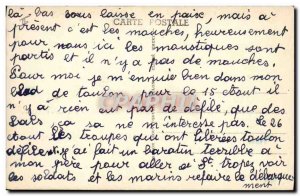 là-bas vous laisse en paix, mais à
CARTE POSTALE
présent c'est les mouches, heureusement
pour nous ici les moustiques sont
partis et il n'y a pas de mouches.
Pour moi je m'ennuie bien dans mon
bled de toulon pour le 15 aout il
n'y a rien eu pas de défilé, que des
bals ça sa ne m'interesse pas. Le 26
aout les troupes qui ont liberées toulon
défileront, j'ai fait un baratin terrible à
mon père pour aller à St. tropez voir
les soldats et les marins refaire le débarque
ment